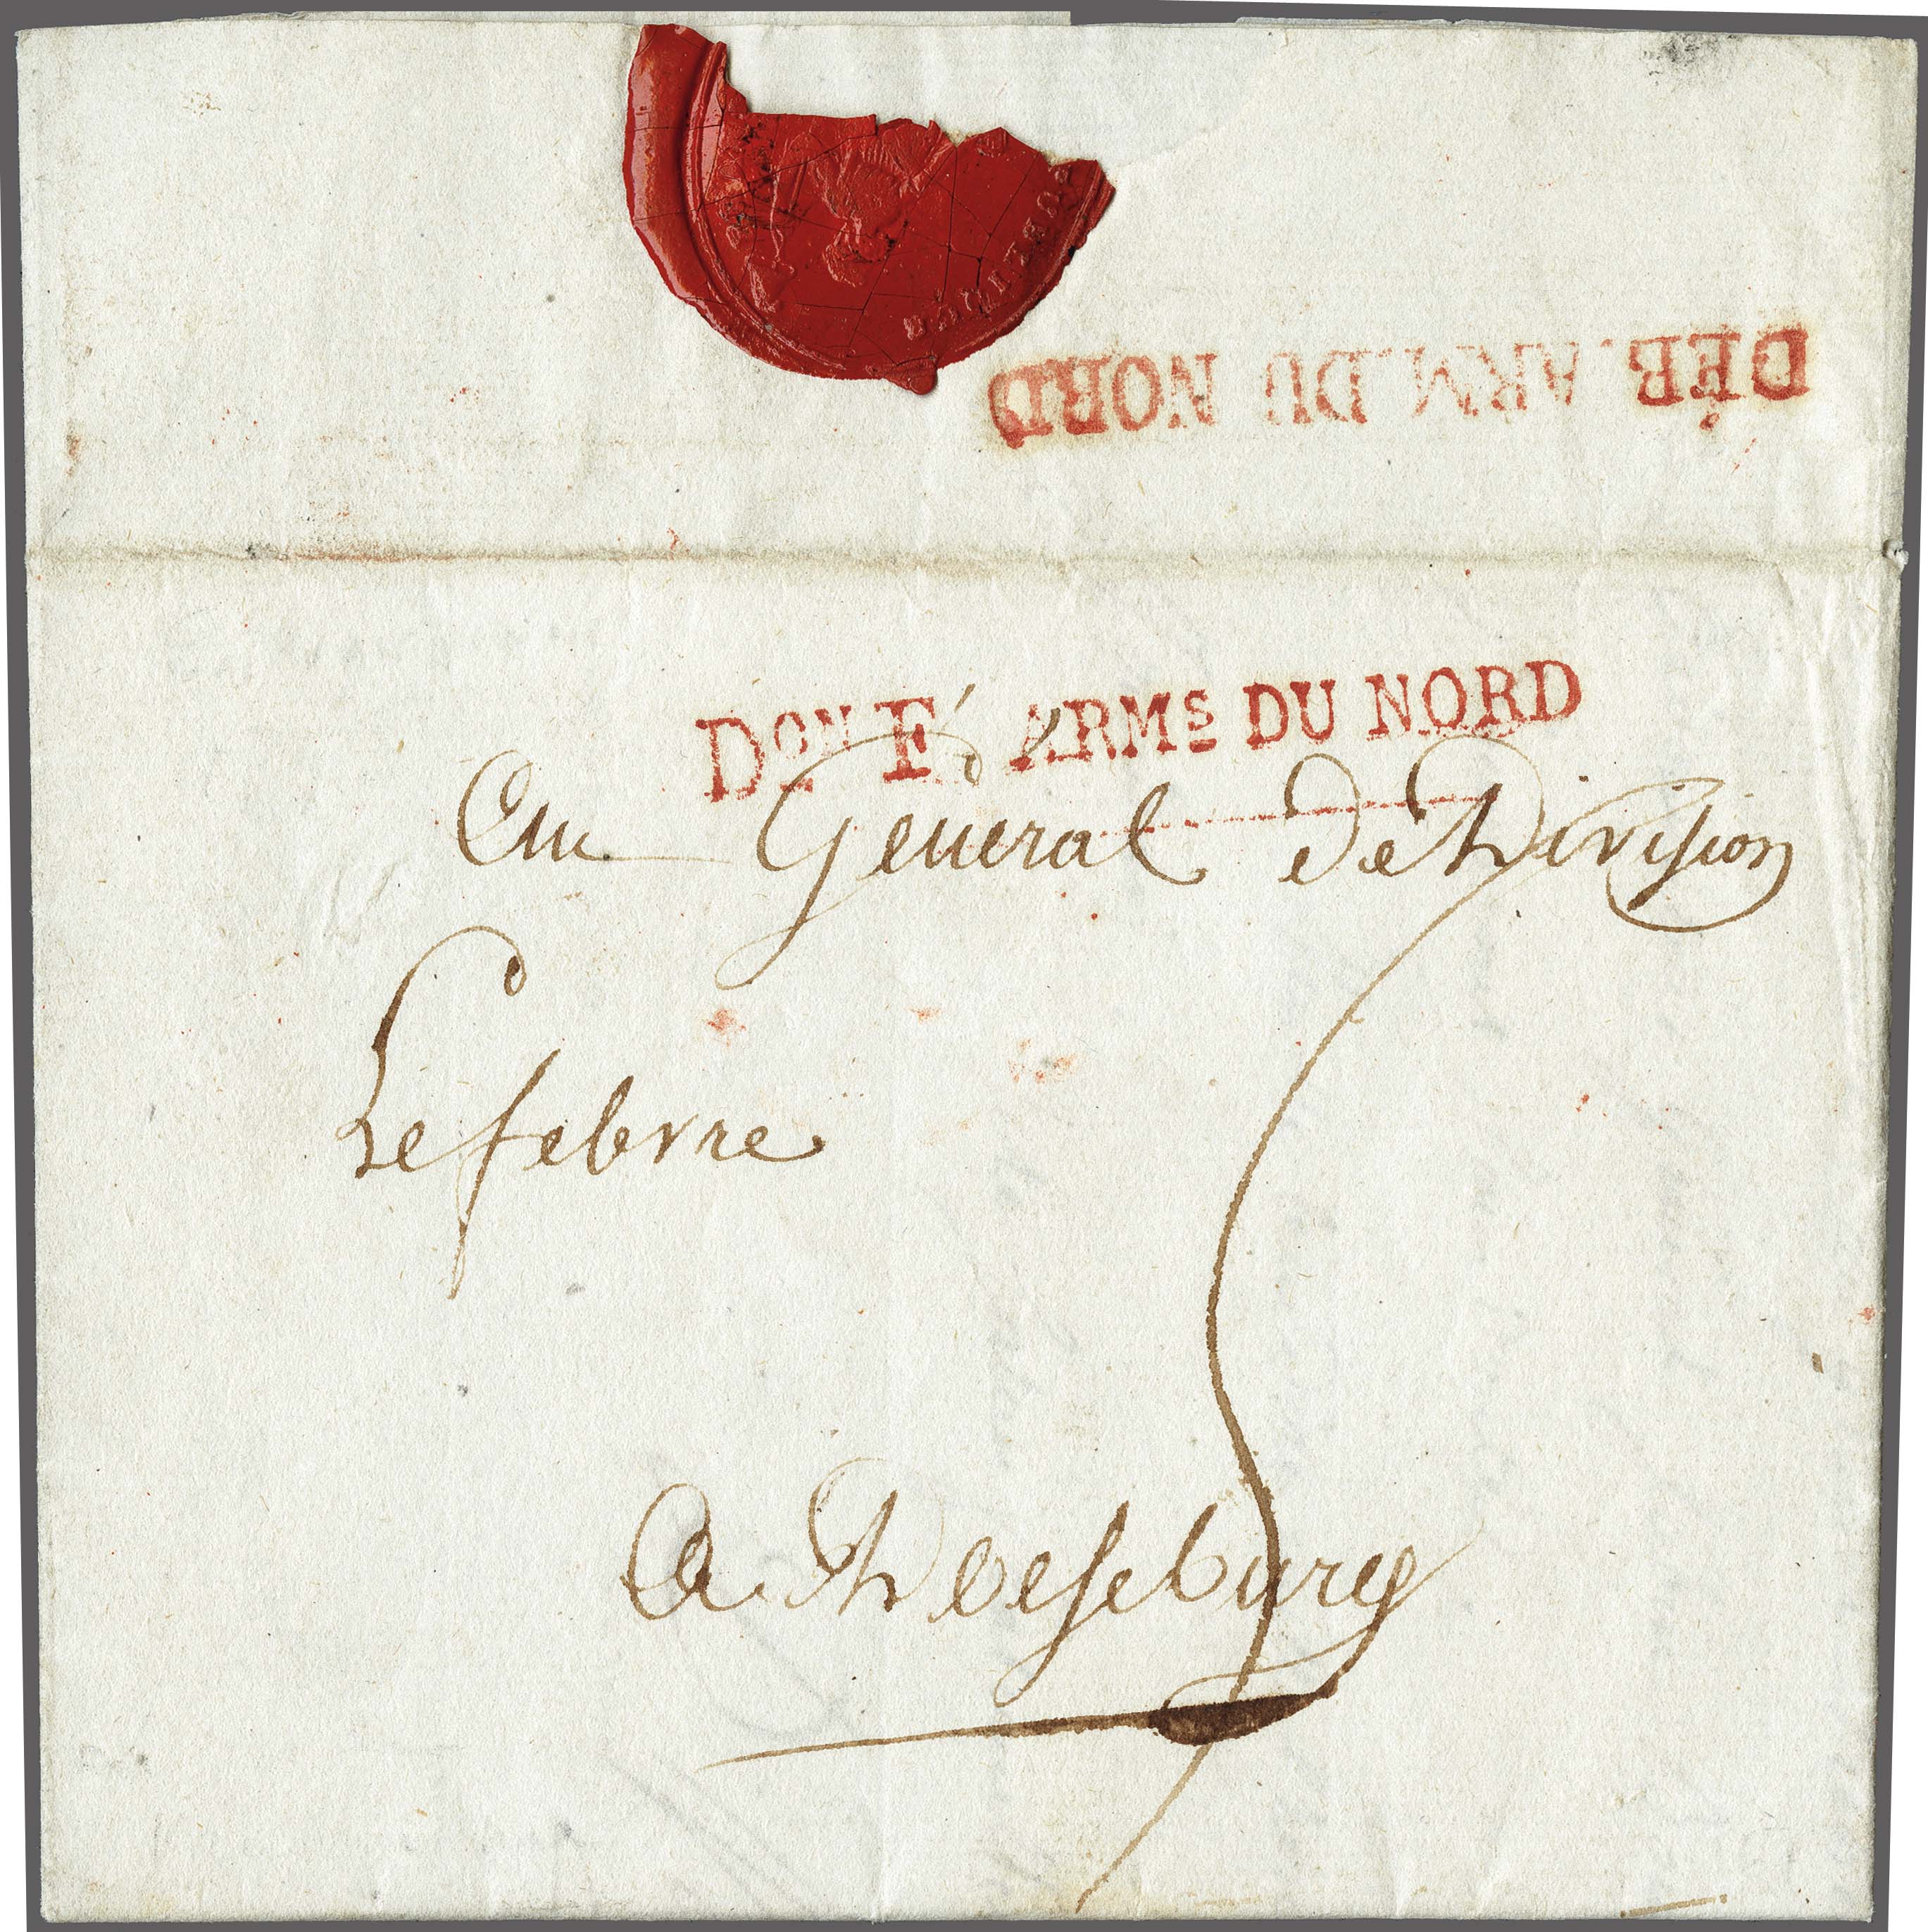 DÉB. ARM. DU NORD
DON F ARMS DU NORD
Au Général de Division
Lefebvre
A Doesburg